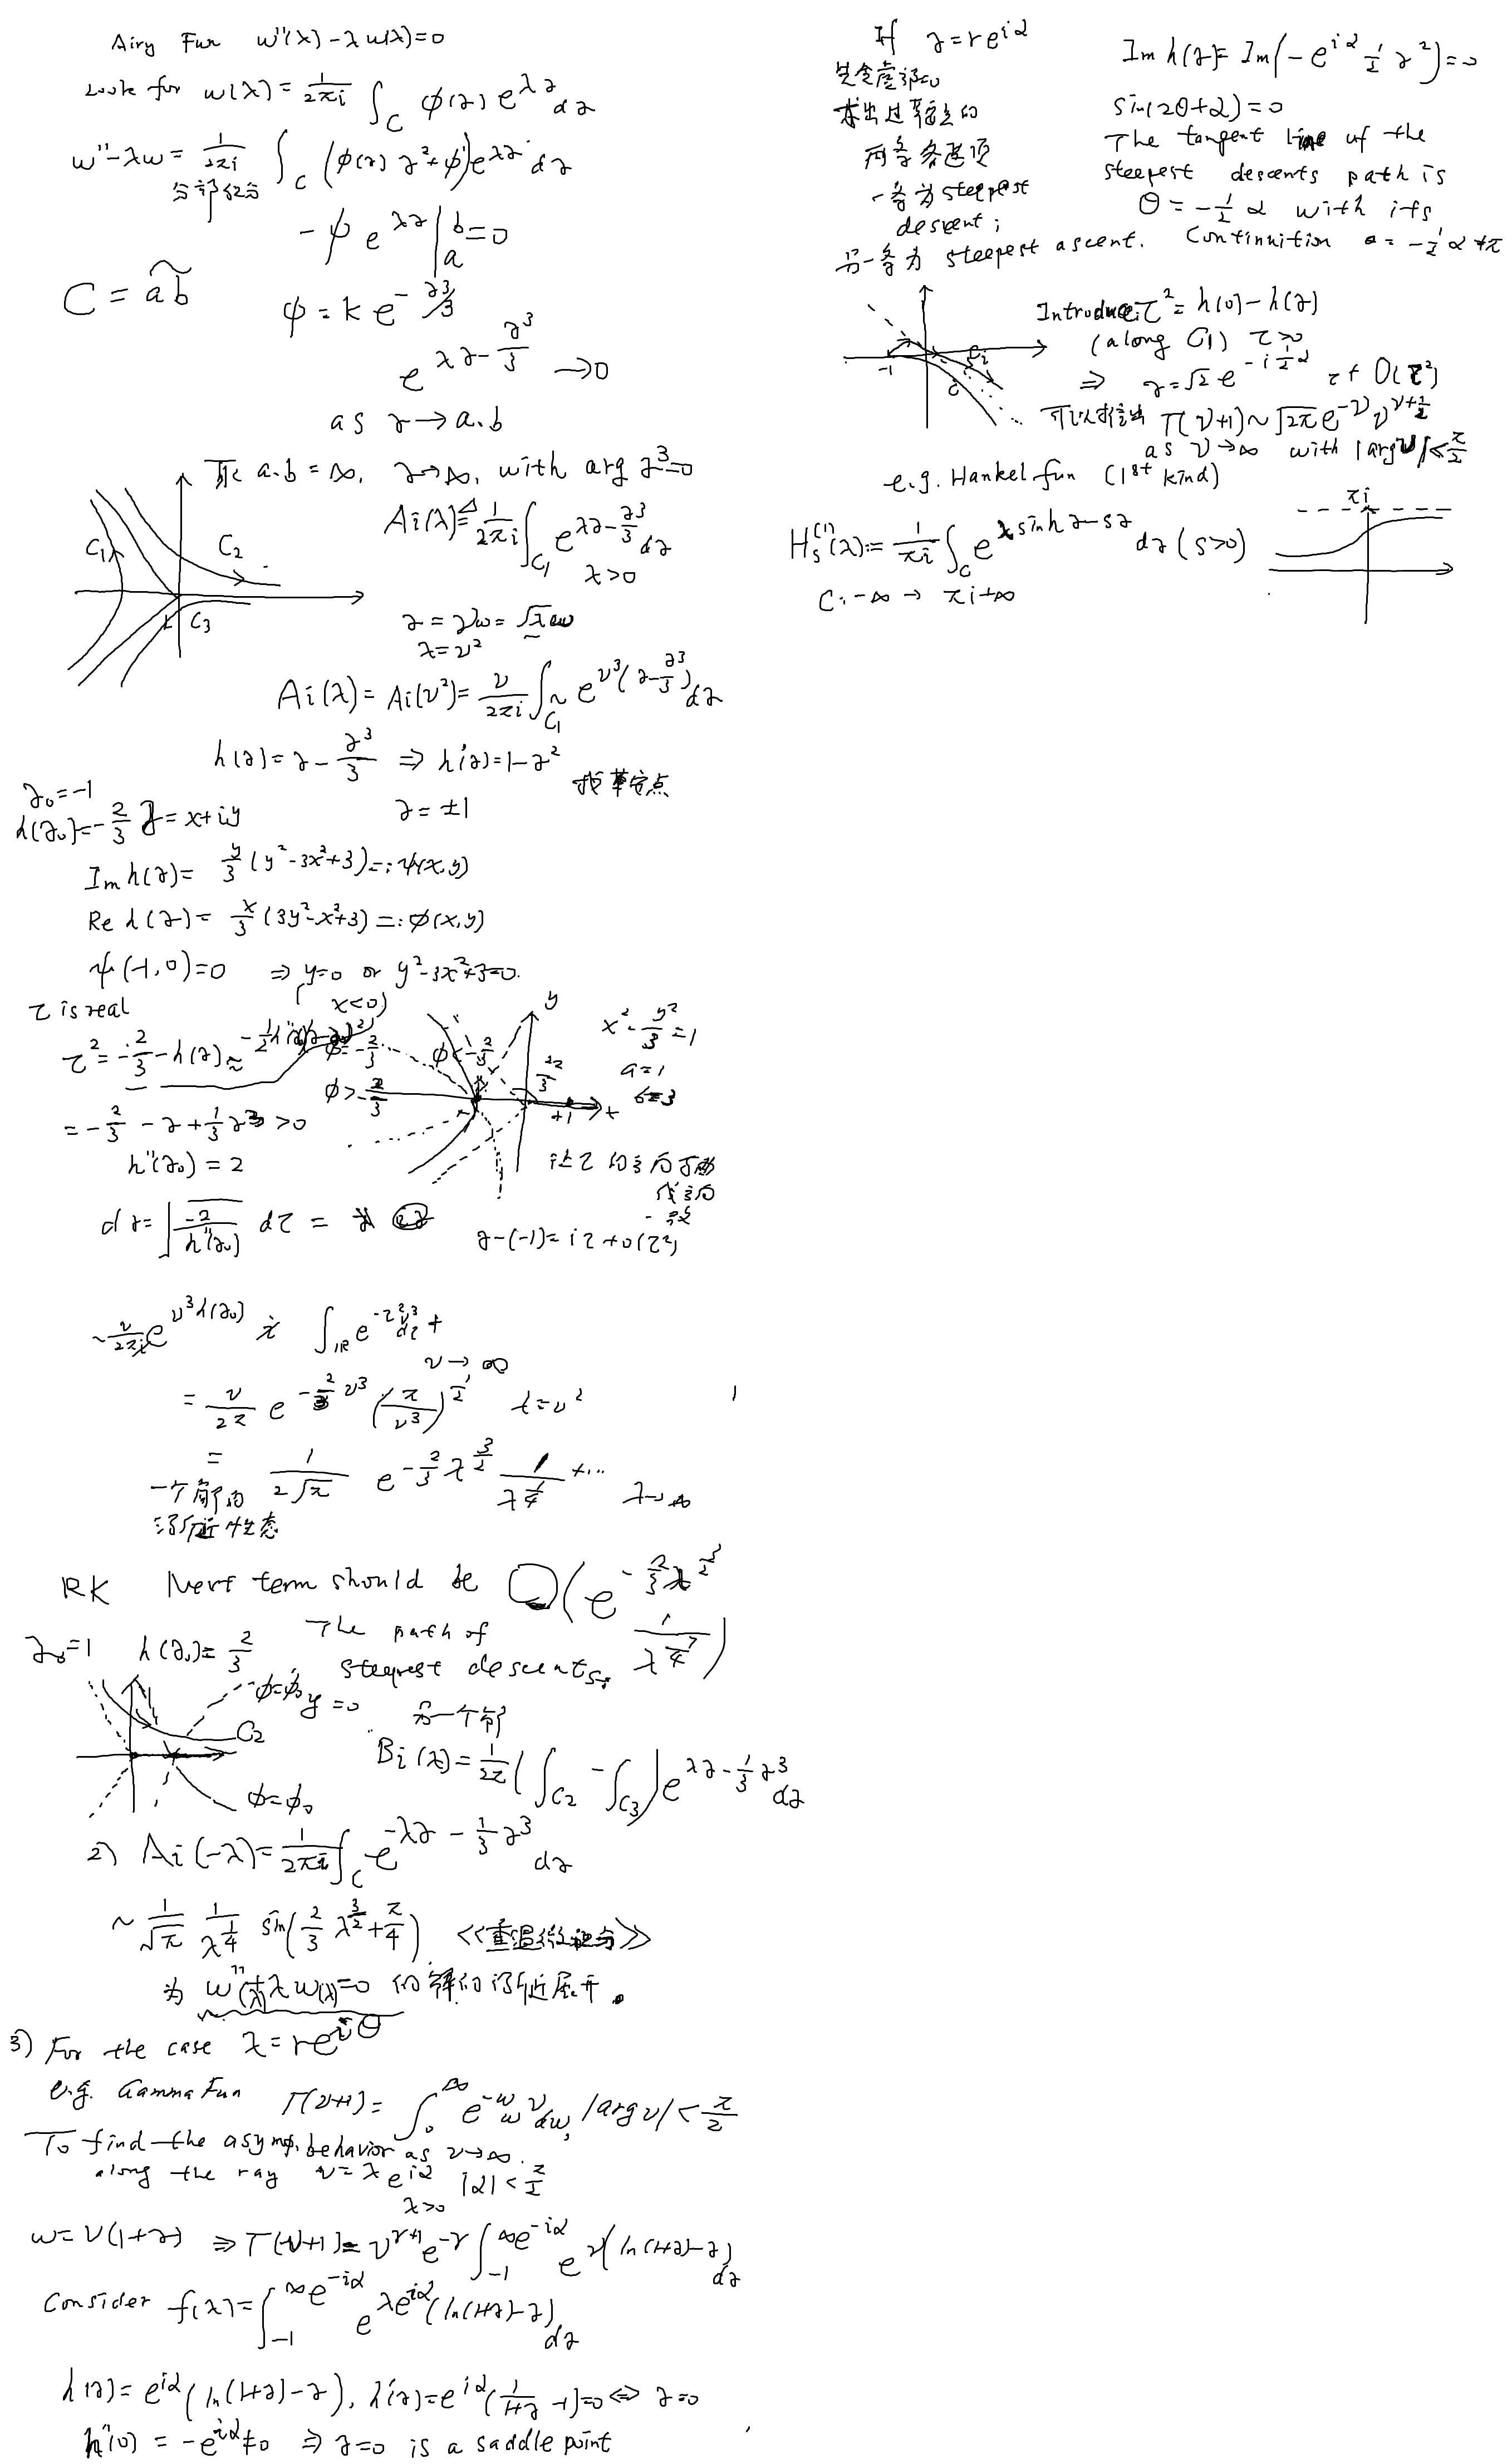 Airy Fun w''(λ)-λw(λ)=0
Look for w(λ)=1/2πi ∫_C φ(z)e^{λz}dz
w''-λw=1/2πi ∫_C (φ(z)z²+φ')e^{λz}dz
分部积分
-φe^{λz}|_a^b=0
C=ab
φ=ke^{-z³/3}
e^{λz-z³/3}→0
as z→a.b
取a.b=∞, z→∞, with arg z³=0
C₁ C₂ C₃
Ai(λ)≜1/2πi ∫_{C₁} e^{λz-z³/3}dz
λ>0
z=νw=√λw
λ=ν²
Ai(λ)=Ai(ν²)=ν/2πi ∫_{C̃₁} e^{ν³(z-z³/3)}dz
h(z)=z-z³/3 ⇒ h'(z)=1-z²
找鞍点
z=±1
z₀=-1
h(z₀)=-2/3 z=x+iy
Im h(z)=y/3(y²-3x²+3)=:ψ(x,y)
Re h(z)=x/3(3y²-x²+3)=:φ(x,y)
ψ(-1,0)=0 ⇒ y=0 or y²-3x²+3=0.
(x<0)
τ is real
τ²=-2/3-h(z)≈
=-2/3-z+1/3z³>0
h''(z₀)=2
φ=-2/3 φ<-2/3
φ>-2/3
+1
y
x²-y²/3=1
a=1
b=3
dz=√(-2/h''(z₀)) dτ=
z-(-1)=iτ+o(τ²)
~ν/2πi e^{ν³h(z₀)} i ∫_ℝ e^{-τ²ν³}dτ+
ν→∞
=ν/2π e^{-2/3ν³}(π/ν³)^{1/2} λ=ν²
=1/2√π e^{-2/3λ^{3/2}} 1/λ^{1/4}+... λ→∞
一个解的
渐近性态
RK Next term should be O(e^{-2/3λ^{3/2}} 1/λ^{7/4})
z₀=1 h(z₀)=2/3 The path of
steepest descents:
y=0
φ=φ₀
C₂
φ=φ₀
另一个解
Bi(λ)=1/2π(∫_{C₂}-∫_{C₃})e^{λz-1/3z³}dz
2) Ai(-λ)=1/2πi ∫_C e^{-λz-1/3z³}dz
~1/√π 1/λ^{1/4} sin(2/3λ^{3/2}+π/4) <<重温微积分>>
为w''(λ)+λw(λ)=0的解的渐近展开。
3) For the case λ=re^{iθ}
e.g. Gamma Fun Γ(ν+1)=∫_0^∞ e^{-w}w^ν dw, |arg ν|<π/2
To find the asymp. behavior as ν→∞.
along the ray ν=λe^{iα} |α|<π/2
λ>0
w=ν(1+z) ⇒ Γ(ν+1)=ν^{ν+1}e^{-ν}∫_{-1}^{∞e^{-iα}} e^{ν(ln(1+z)-z)}dz
Consider f(λ)=∫_{-1}^{∞e^{-iα}} e^{λe^{iα}(ln(1+z)-z)}dz
h(z)=e^{iα}(ln(1+z)-z), h'(z)=e^{iα}(1/(1+z)-1)=0 ⇔ z=0
h''(0)=-e^{iα}≠0 ⇒ z=0 is a saddle point
If z=re^{iα}
先令虚部=0
求出过鞍点的
两条备选项
一条为steepest
descent;
另一条为steepest ascent.
Im h(z)=Im(-e^{iα}1/2z²)=0
sin(2θ+α)=0
The tangent line of the
steepest descents path is
θ=-1/2α with its
Continuition θ=-1/2α+π
-1
Introduce τ²=h(0)-h(z)
(along C₁) τ>0
⇒ z=√2e^{-i1/2α}τ+O(τ²)
可以求出Γ(ν+1)~√2πe^{-ν}ν^{ν+1/2}
as ν→∞ with |arg ν|<π/2
e.g. Hankel fun (1st kind)
H_s^{(1)}(λ):=1/πi ∫_C e^{λsinh z-sz}dz (s>0)
C:-∞→πi+∞
πi